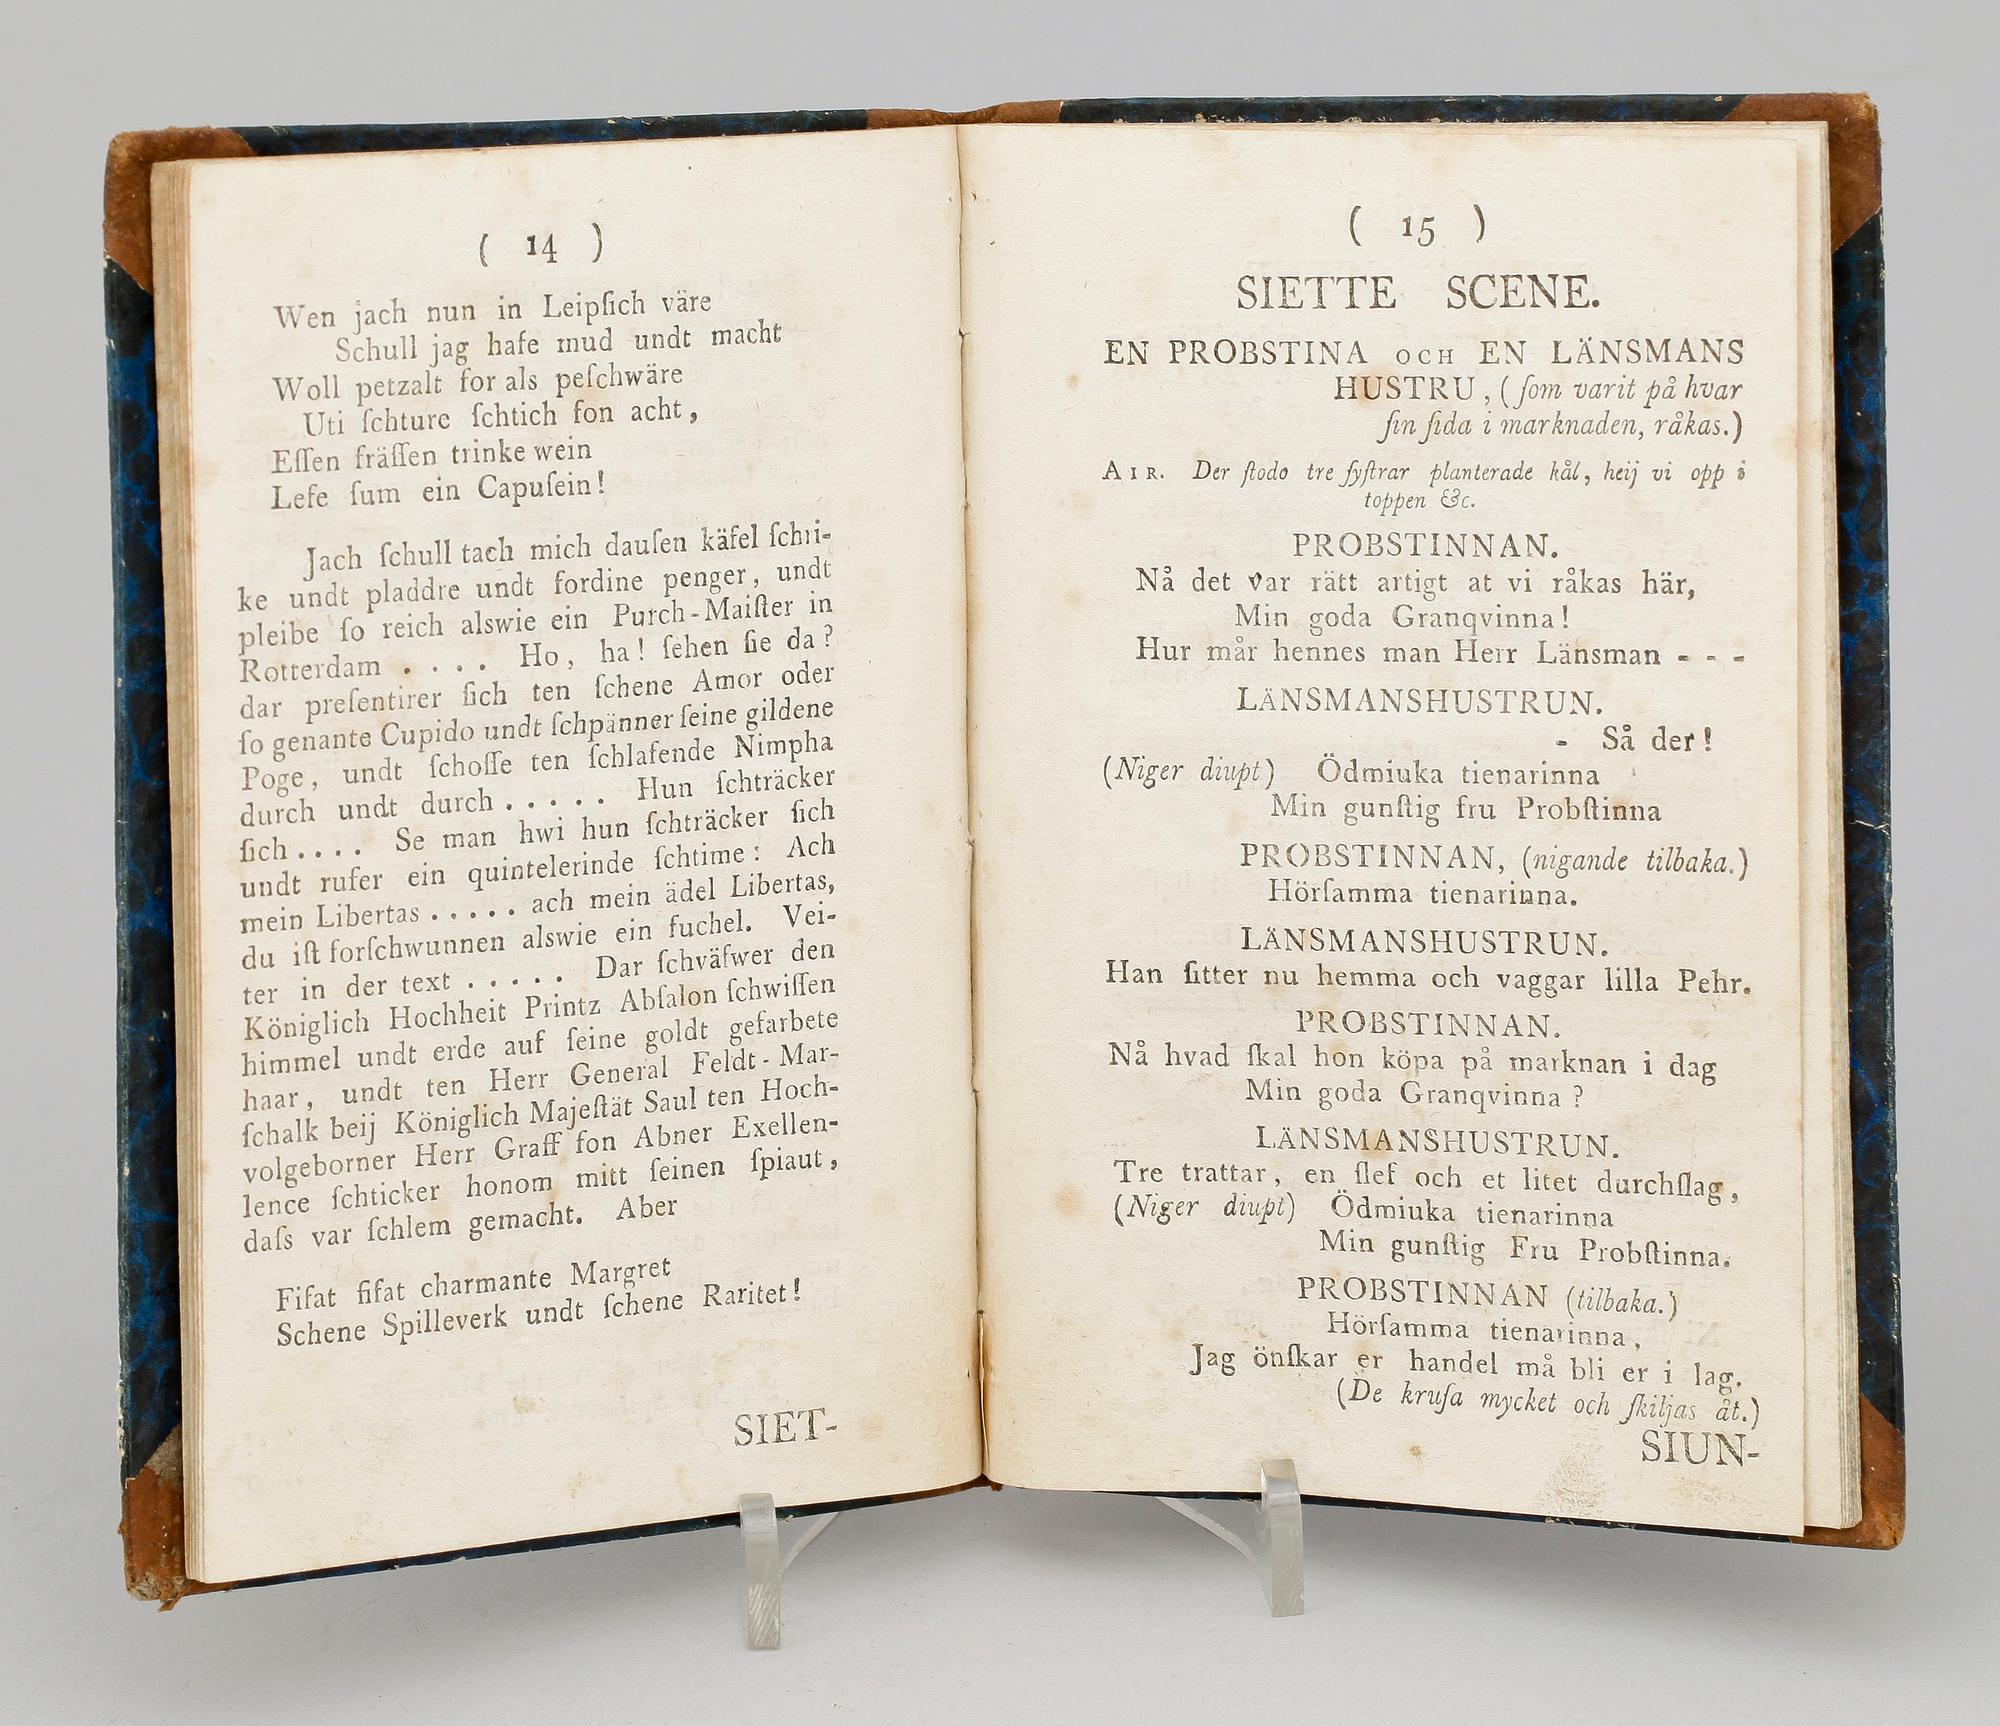 ( 14 )
Wen jach nun in Leipſich väre
Schull jag hafe mud undt macht
Woll petzalt for als peſchwäre
Uti ſchture ſchtich fon acht,
Eſſen fräſſen trinke wein
Leſe ſum ein Capuſein!
Jach ſchull tach mich dauſen käſel ſchri-
ke undt pladdre undt fordine penger, undt
pleibe ſo reich alswie ein Purch-Maiſter in
Rotterdam . . . . Ho, ha! ſehen ſie da?
dar preſentirer ſich ten ſchene Amor oder
ſo genante Cupido undt ſchpänner ſeine gildene
Poge, undt ſchoſſe ten ſchlafende Nimpha
durch undt durch . . . . . Hun ſchträcker
ſich . . . . Se man hwi hun ſchträcker ſich
undt rufer ein quintelerinde ſchtime: Ach
mein Libertas . . . . . ach mein ädel Libertas,
du iſt forſchwunnen alswie ein fuchel. Vei-
ter in der text . . . . . Dar ſchväſwer den
Königlich Hochheit Printz Abſalon ſchwiſſen
himmel undt erde auf ſeine goldt gefarbete
haar, undt ten Herr General Feldt-Mar-
ſchalk beij Königlich Majeſtät Saul ten Hoch-
volgeborner Herr Graff fon Abner Exellen-
lence ſchticker honom mitt ſeinen ſpiaut,
daſs var ſchlem gemacht. Aber
Fifat fifat charmante Margret
Schene Spilleverk undt ſchene Raritet!
SIET-
( 15 )
SIETTE SCENE.
EN PROBSTINA OCH EN LÄNSMANS
HUSTRU, (ſom varit på hvar
ſin ſida i marknaden, råkas.)
AIR. Der ſtodo tre ſyſtrar planterade kål, heij vi opp i
toppen &c.
PROBSTINNAN.
Nå det var rätt artigt at vi råkas här,
Min goda Granqvinna!
Hur mår hennes man Herr Länsman - - -
LÄNSMANSHUSTRUN.
- Så der!
(Niger diupt) Ödmiuka tienarinna
Min gunſtig fru Probſtinna
PROBSTINNAN, (nigande tilbaka.)
Hörſamma tienarinna.
LÄNSMANSHUSTRUN.
Han ſitter nu hemma och vaggar lilla Pehr.
PROBSTINNAN.
Nå hvad ſkal hon köpa på marknan i dag
Min goda Granqvinna?
LÄNSMANSHUSTRUN.
Tre trattar, en ſlef och et litet durchſlag,
(Niger diupt) Ödmiuka tienarinna
Min gunſtig Fru Probſtinna.
PROBSTINNAN (tilbaka.)
Hörſamma tienarinna,
Jag önſkar er handel må bli er i lag.
(De kruſa mycket och ſkiljas åt.)
SIUN-